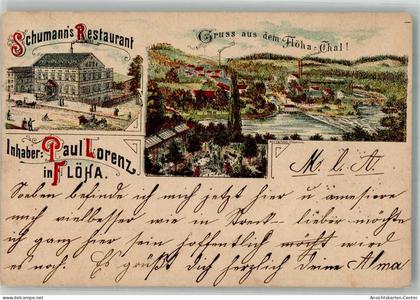 Schumann's Restaurant
Gruss aus dem Flöha-Thal!
Inhaber: Paul Lorenz
in FLÖHA.
M. l. A.
Soeben befinde ich mich jetzt hier u amesiere
mich vielbesser wie in lieber möchten
ich ganz hier sein hoffentlich wird
es noch. Es grüßt dich herzlich deine Alma